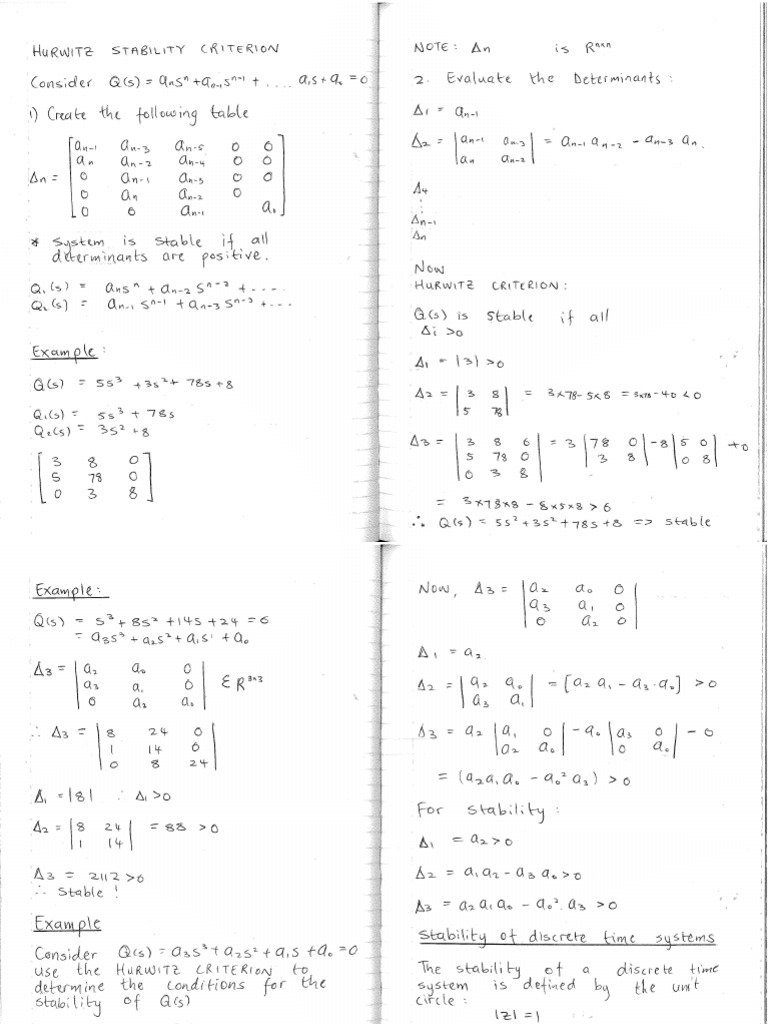 HURWITZ STABILITY CRITERION
Consider Q(s) = aₙsⁿ + aₙ₋₁sⁿ⁻¹ + .... a₁s + a₀ = 0
1) Create the following table
Δn =
aₙ₋₁ aₙ₋₃ aₙ₋₅ 0 0
aₙ aₙ₋₂ aₙ₋₄ 0 0
0 aₙ₋₁ aₙ₋₃ 0 0
0 aₙ aₙ₋₂ 0
0 0 aₙ₋₁ a₀
* System is stable if all
determinants are positive.
Q₁(s) = aₙsⁿ + aₙ₋₂ sⁿ⁻² + ....
Q₂(s) = aₙ₋₁ sⁿ⁻¹ + aₙ₋₃ sⁿ⁻³ + ...
Example:
Q(s) = 5s³ + 3s² + 78s + 8
Q₁(s) = 5s³ + 78s
Q₂(s) = 3s² + 8
3 8 0
5 78 0
0 3 8
NOTE: Δn is Rⁿˣⁿ
2. Evaluate the Determinants:
Δ₁ = aₙ₋₁
Δ₂ = |aₙ₋₁ aₙ₋₃| = aₙ₋₁ aₙ₋₂ - aₙ₋₃ aₙ.
|aₙ aₙ₋₂|
Δ₄
⋮
Δn-1
Δn
Now
HURWITZ CRITERION:
Q(s) is stable if all
Δi >0
Δ₁ = |3| >0
Δ₂ = |3 8| = 3×78-5×8 = 3×78-40 < 0
|5 78|
Δ₃ = |3 8 0| = 3 |78 0| -8 |5 0| +0
|5 78 0| |3 8| |0 8|
|0 3 8|
= 3×78×8 - 8×5×8 > 0
∴ Q(s) = 5s² + 3s² + 78s + 8 => stable
Example:
Q(s) = s³ + 8s² + 14s + 24 = 0
= a₃s³ + a₂s² + a₁s¹ + a₀
Δ₃ = |a₂ a₀ 0|
|a₃ a₁ 0| ε R³ˣ³
|0 a₂ a₀|
∴ Δ₃ = |8 24 0|
|1 14 0|
|0 8 24|
Δ₁ = |8| ∴ Δ₁>0
Δ₂ = |8 24| = 88 >0
|1 14|
Δ₃ = 2112 >0
∴ Stable!
Example
Consider Q(s) = a₃s³ + a₂s² + a₁s + a₀ = 0
use the HURWITZ CRITERION to
determine the conditions for the
stability of Q(s)
Now, Δ₃ = |a₂ a₀ 0|
|a₃ a₁ 0|
|0 a₂ 0|
Δ₁ = a₂
Δ₂ = |a₂ a₀| = [a₂ a₁ - a₃·a₀] >0
|a₃ a₁|
Δ₃ = a₂ |a₁ 0| - a₀ |a₃ 0| - 0
|a₂ a₀| |0 a₀|
= (a₂a₁a₀ - a₀²a₃) >0
For stability:
Δ₁ = a₂>0
Δ₂ = a₁a₂ - a₃a₀>0
Δ₃ = a₂a₁a₀ - a₀².a₃ >0
Stability of discrete time systems
The stability of a discrete time
system is defined by the unit
circle:
|z| = 1